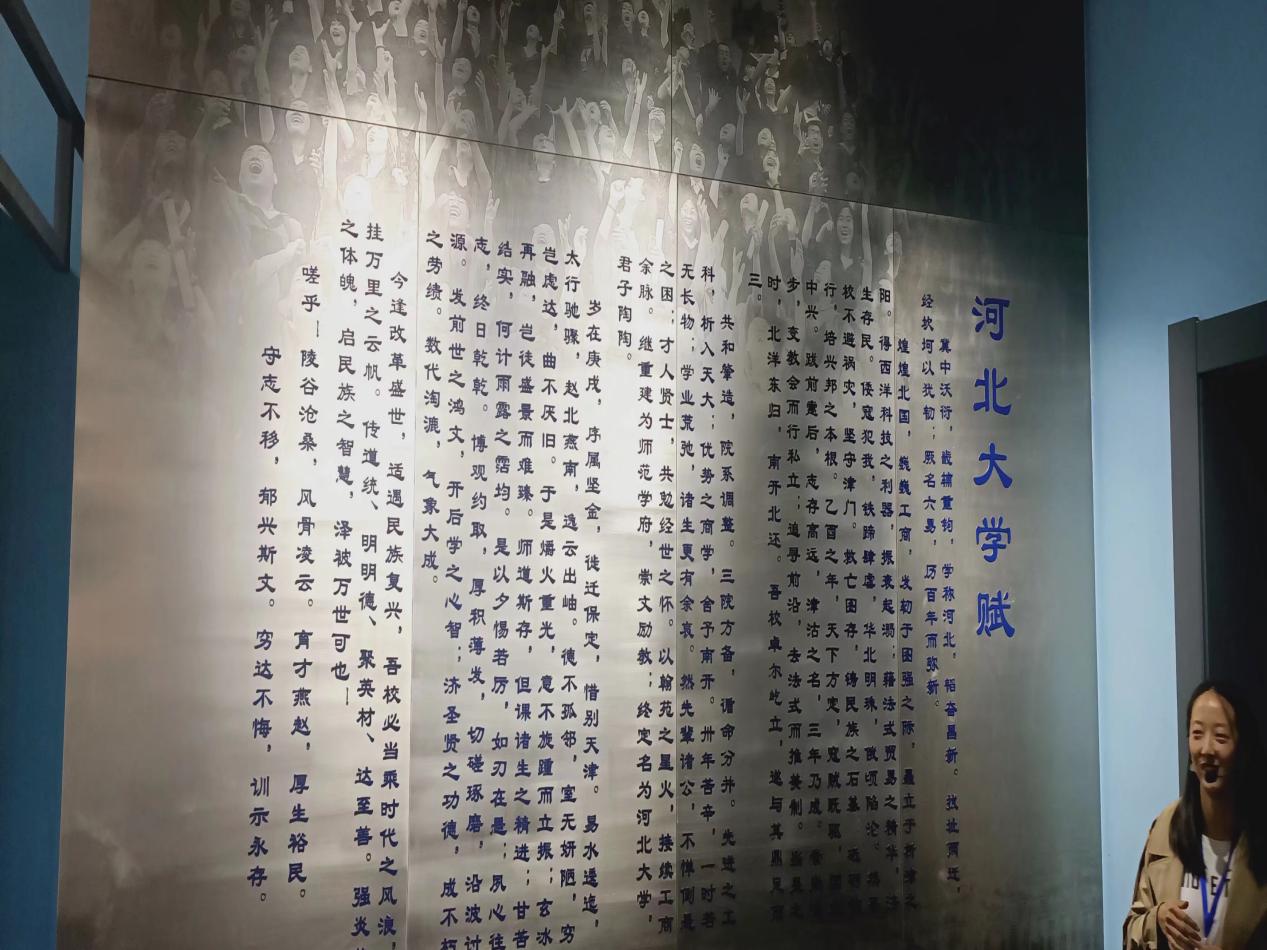 河北大学赋
冀中沃衍，畿辅重钧，学称河北，韬奋昌新。
经坎坷以犹韧；厥名六易，历百年而弥新。
煌煌北国，巍巍工商，发轫于图强之际，矗立于析津之
阳。得西洋科技之利器，振衰起溺；藉法式贸易之精华，济
生存民。倭寇犯我，铁蹄肆虐，华北明珠，俄顷陷沦。
校不避祸灾，坚守津门。救亡图存，铸民族之石基
行，培兴邦之本根。乙酉之年，天下方定，寇贼既驱，
中兴。践前建后，志存高远，津沽之名，三年乃成。
步，变教会而行私立；追寻前沿，去法式而推美制。当是之
时，北洋东归，南开北还。吾校卓尔屹立，遂与其鼎足而
三。
共和肇造，院系调整。三院方备，循命分并。先进之工
科，析入天大；优势之商学，舍予南开。卅年苦辛，一时若
无长物；学业荒弛，诸生更有余哀。然先辈诸公，不惮倒悬
之困；才人贤士，共勉经世之怀。以翰苑之星火，接续工商
余脉。继重建为师范学府，崇文励教；终定名为河北大学，
君子陶陶。
岁在庚戌，序属坚金，徙迁保定，惜别天津。易水逶迤，
太行驰骤，赵北燕南，透云出岫。德不孤邻，室无妍陋，穷
岂虑达，曲不厌旧。于是爝火重光，意不旋踵而立振；玄冰
再融，岂徒盛景而难臻。师道斯存，但课诸生之精进；甘苦
结实，何计雨露之霑均。是以夕惕若厉，如刃在悬；夙心往
志，终日乾乾。博观约取，厚积薄发，切磋琢磨，沿波讨
源。发前世之鸿文，开后学之心智；济圣贤之功德，成不朽
之劳绩。数代淘漉，气象大成。
今逢改革盛世，适遇民族复兴，吾校必当乘时代之风浪，
挂万里之云帆。传道统、明明德、聚英材、达至善。强炎
之体魄，启民族之智慧，泽被万世可也—
嗟乎—陵谷沧桑，风骨凌云。育才燕赵，厚生裕民。
守志不移，郁兴斯文。穷达不悔，训示永存。